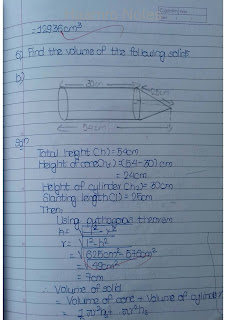 = 12936cm³
6) Find the volume of the following solids
b)
30cm
25cm
54cm
Solⁿ
Total height (h) = 54cm
Height of cone (h₁) = (54-30)cm
= 24cm
Height of cylinder (h₂) = 30cm
Slanting length (l) = 25cm
Then,
Using pythagoras theorem
r = √l²-h²
= √625cm²-576cm²
= √49cm²
= 7cm
∴ Volume of solid
= Volume of cone + Volume of cylinder